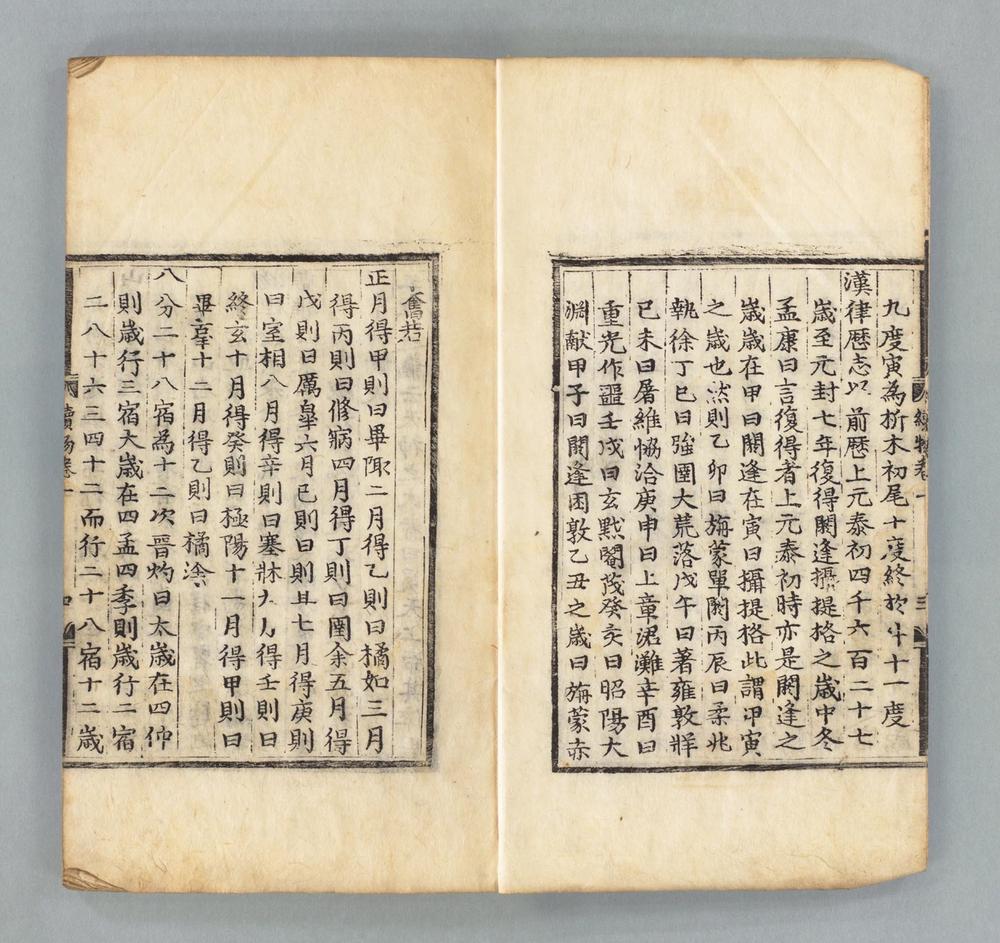 九度寅為析木初尾十度終於斗十一度
漢律歷志以前歷上元泰初四千六百二十七
歲至元封七年復得閼逢攝提格之歲中冬
孟康曰言復得者上元泰初時亦是閼逢之
歲歲在甲曰閼逢在寅曰攝提格此謂甲寅
之歲也然則乙卯曰旃蒙單閼丙辰曰柔兆
執徐丁巳曰強圉大荒落戊午曰著雍敦牂
已未曰屠維協洽庚申曰上章涒灘辛酉曰
重光作噩壬戌曰玄黓閹茂癸亥曰昭陽大
淵献甲子曰閼逢困敦乙丑之歲曰旃蒙赤
奮若
正月得甲則曰畢陬二月得乙則曰橘如三月
得丙則曰修病四月得丁則曰圉余五月得
戊則曰厲皐六月已則曰則且七月得庚則
曰室相八月得辛則曰塞牀九月得壬則曰
終玄十月得癸則曰極陽十一月得甲則曰
畢辜十二月得乙則曰橘涂
八分二十八宿為十二次晉灼曰太歲在四仲
則歲行三宿大歲在四孟四季則歲行二宿
二八十六三四十二而行二十八宿十二歲
讀易卷一
四